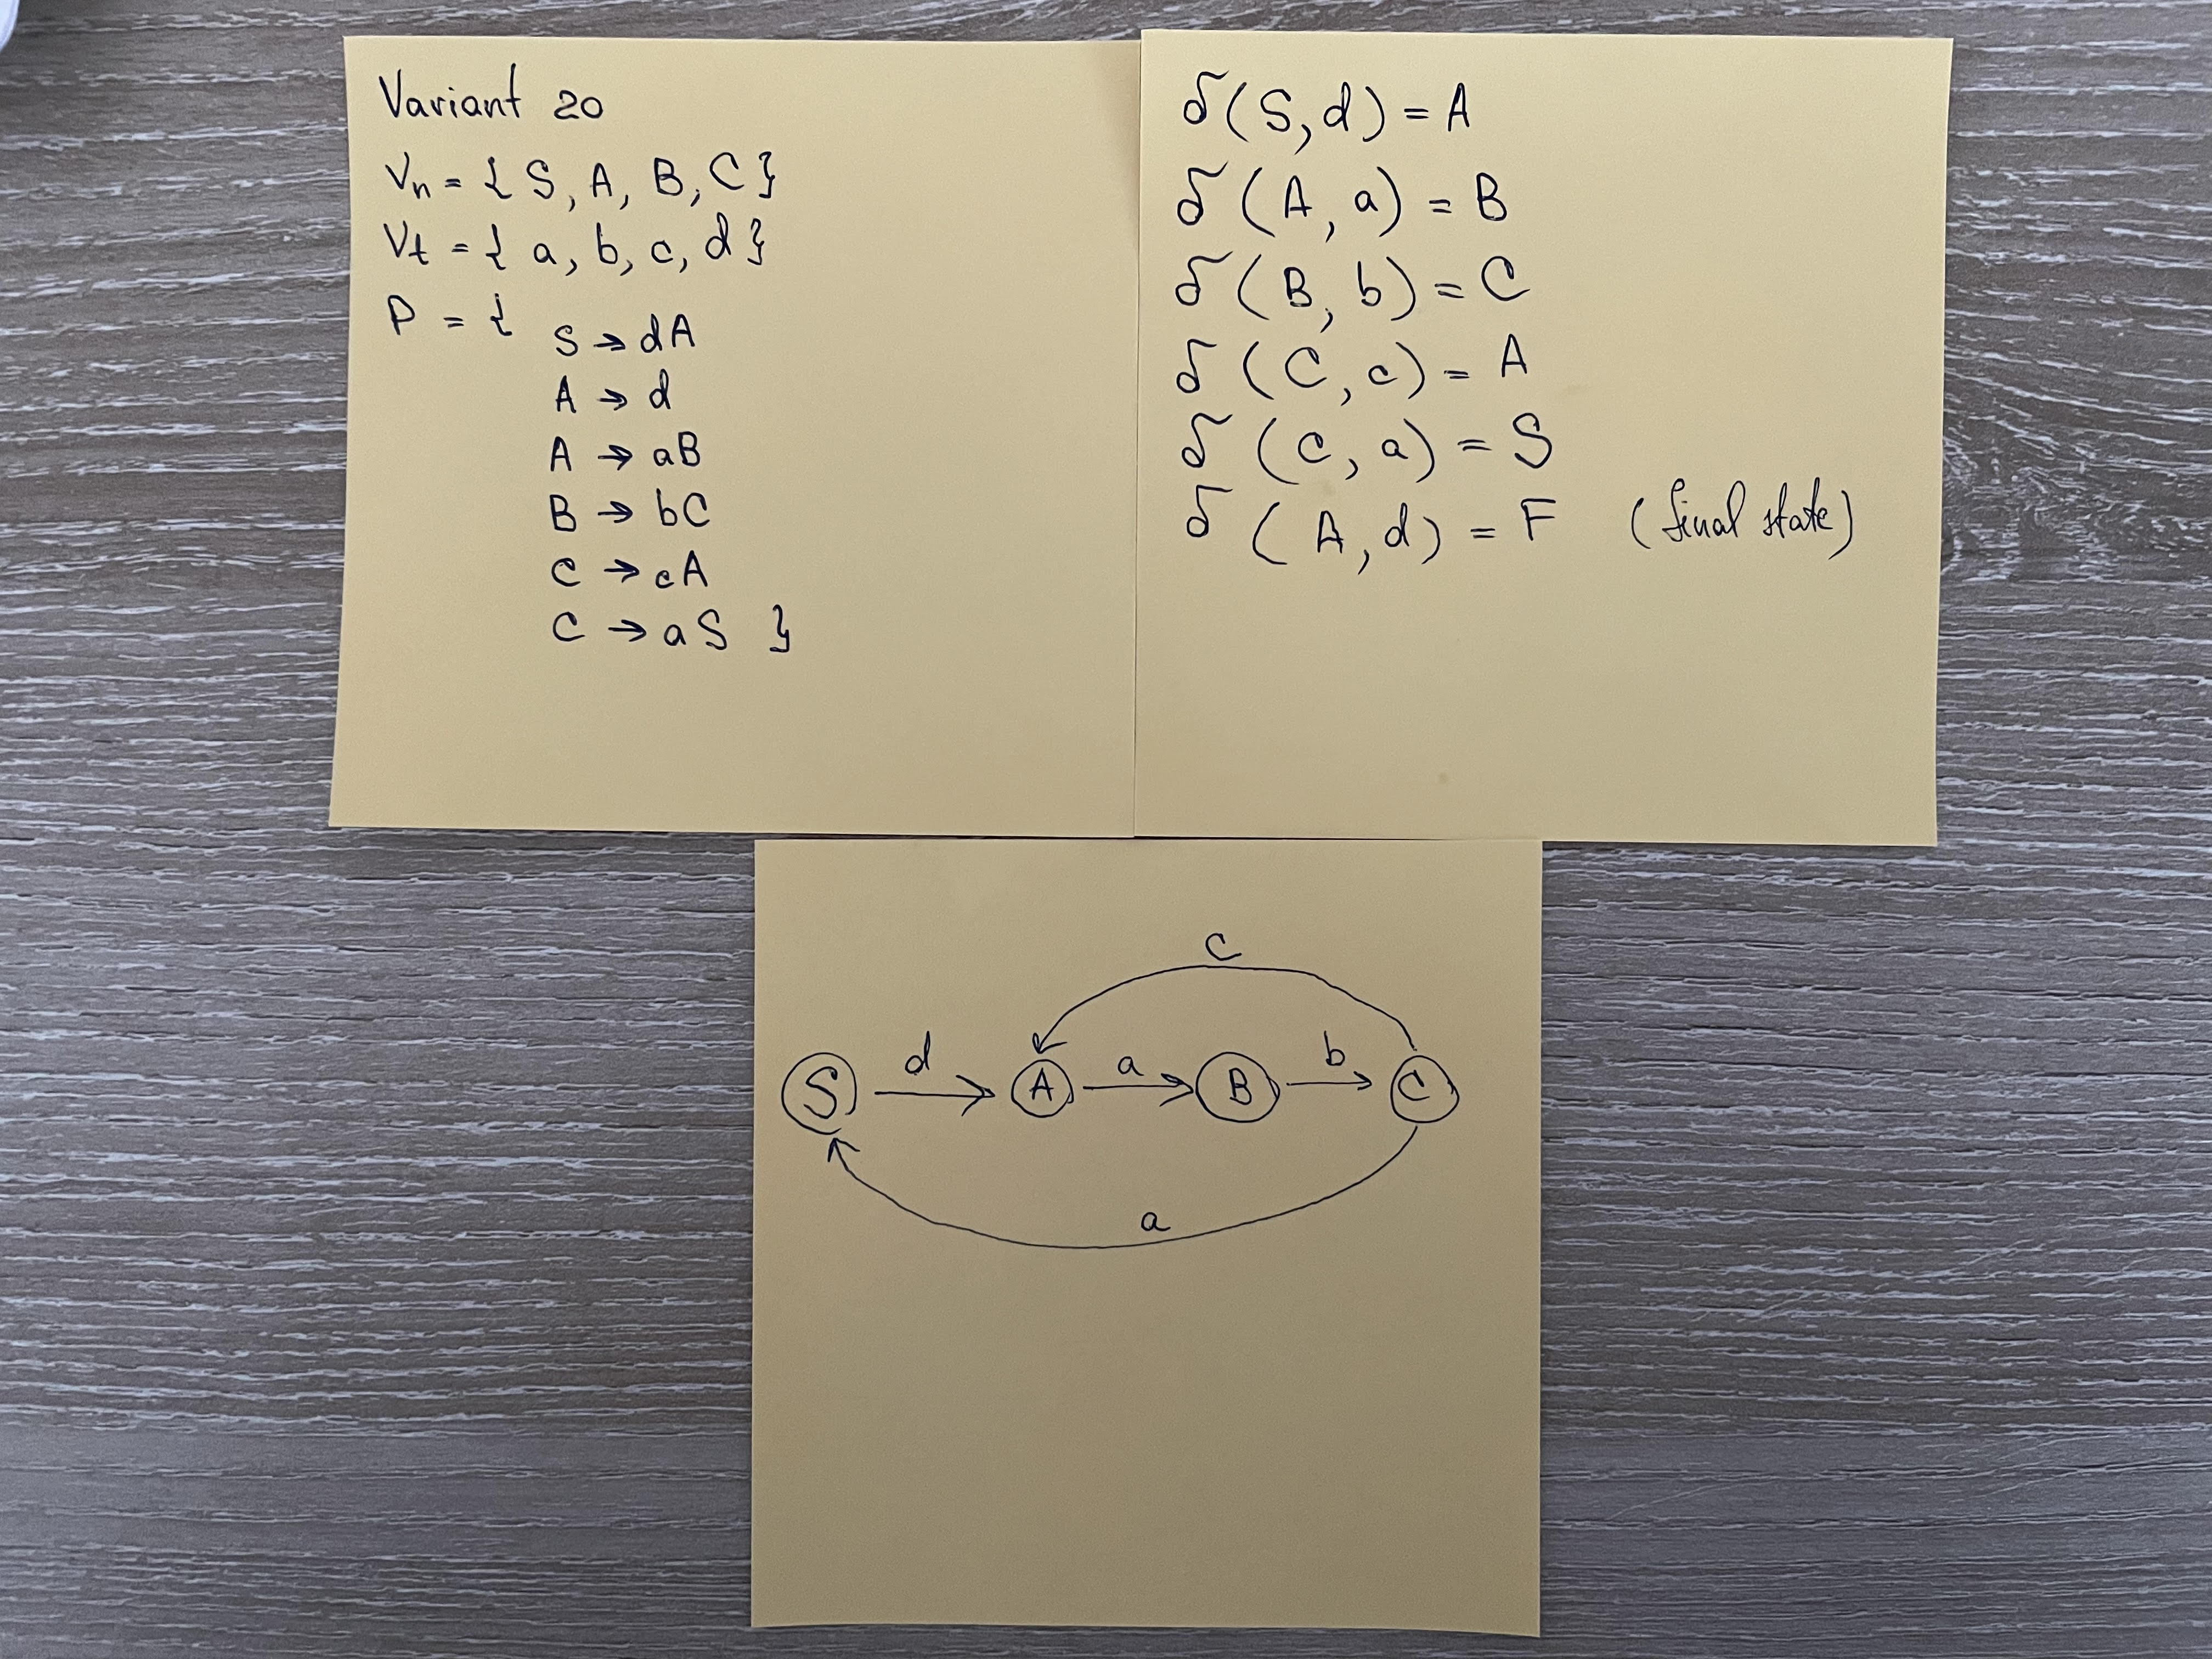 Variant 20
Vn = { S, A, B, C }
Vt = { a, b, c, d }
P = {
S → dA
A → d
A → aB
B → bC
C → cA
C → aS }
δ(S,d) = A
δ(A, a) = B
δ(B, b) = C
δ(C, c) = A
δ(C, a) = S
δ(A, d) = F (final state)
c
d a b
S A B C
a